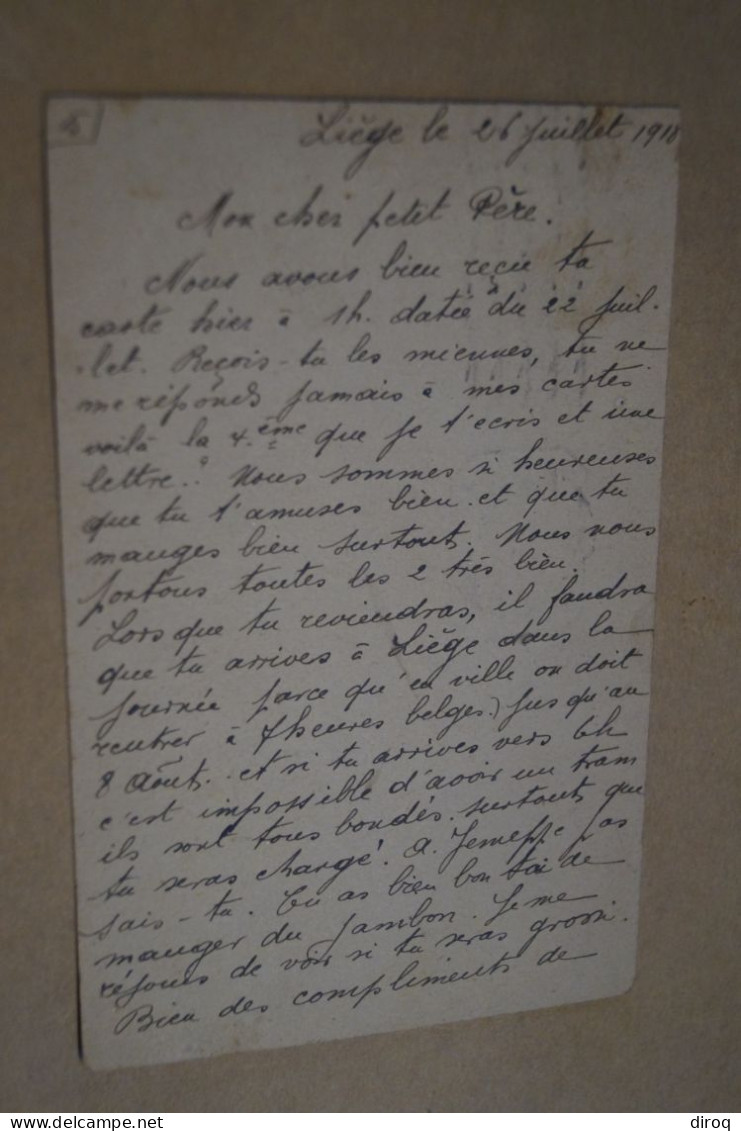 5
Liège le 26 Juillet 1918
Mon cher petit Père.
Nous avons bien reçu ta
carte hier à 1h. datée du 22 Juil-
let. Reçois-tu les miennes, tu ne
me réponds jamais à mes cartes
voilà la 4.ème que je t'écris et une
lettre. Nous sommes si heureuses
que tu t'amuses bien et que tu
manges bien surtout. Nous nous
portons toutes les 2 très bien.
Lorsque tu reviendras, il faudra
que tu arrives à Liège dans la
journée parce qu'en ville on doit
rentrer à 7 heures belges) jusqu'au
8 Août. et si tu arrives vers 6h
c'est impossible d'avoir un tram
ils sont tous bondés. surtout que
tu seras chargé. à Jemeppe pas
sais-tu. Tu as bien bon toi de
manger du jambon. Je me
réjouis de voir si tu seras grossi.
Bien des compliments de
delcampe.net
diroq